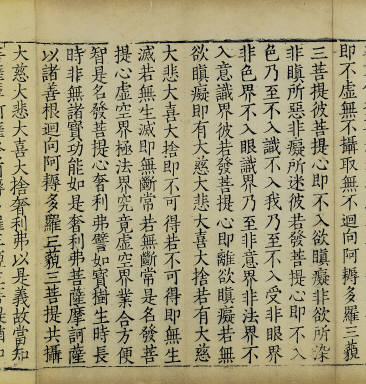 即不虛無不攝取無不迴向阿耨多羅三藐
三菩提彼菩提心即不入欲瞋癡非欲所染
非瞋所惡非癡所迷彼若發菩提心即不入
色乃至不入識不入我乃至不入受非眼界
非色界不入眼識界乃至非意界非法界不
入意識界彼若發菩提心即離欲瞋癡若離
欲瞋癡即有大慈大悲大喜大捨若有大慈
大悲大喜大捨即不可得若不可得即無生
滅若無生滅即無斷常若無斷常是名發菩
提心虛空界極法界究竟虛空界業合方便
智是名發菩提心奢利弗譬如寶樹生時長
時非無諸寶功能如是奢利弗菩薩摩訶薩
以諸善根迴向阿耨多羅三藐三菩提共攝
大慈大悲大喜大捨奢利弗以是義故當知